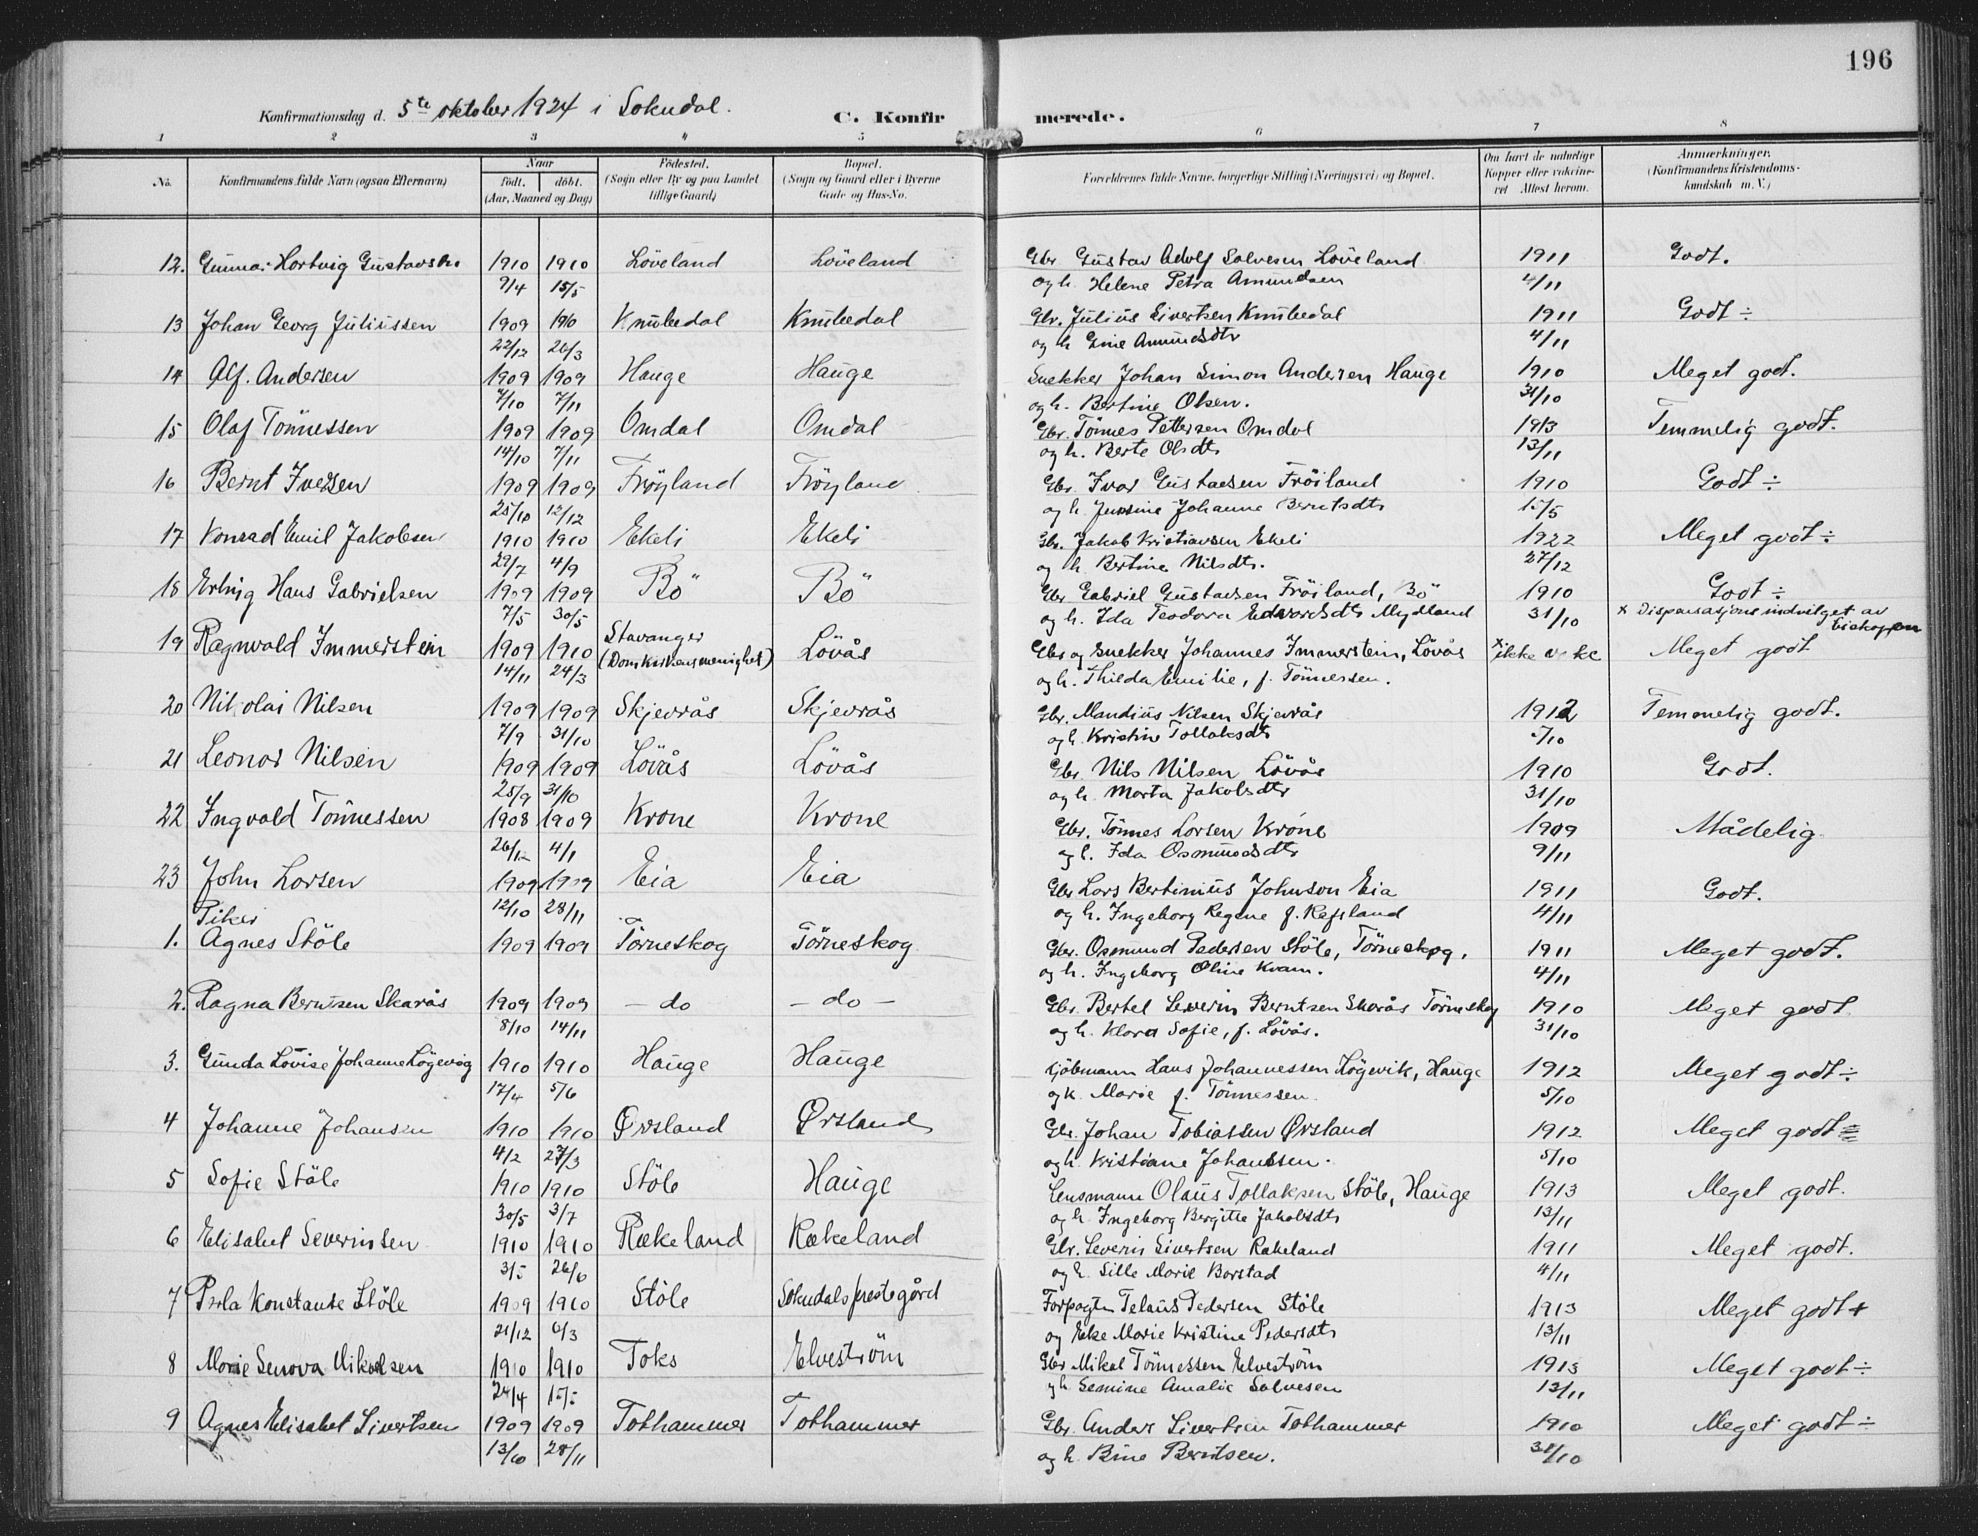 196
Konfirmationsdag d. 5te oktober 1924 i Sokndal.
C. Konfirmerede.
1 2 3 4 5 6 7 8
No. Konfirmandens fulde Navn (ogsaa Efternavn) Naar født. døbt. (Aar, Maaned og Dag) Fødested. (Sogn eller By og paa Landet tillige Gaard) Bopæl. (Sogn og Gaard eller i Byerne Gade og Hus-No. Forældrenes fulde Navne, borgerlige Stilling (Næringsvei) og Bopæl. Om havt de naturlige Kopper eller vakcineret Attest herom. Anmærkninger. (Konfirmandens Kristendomskundskab m. V.)
12. Gunnar Hartvig Gustavsen 1910 1910 Löveland Löveland Gbr. Gustav Adolf Salvesen Löveland 1911 Godt.
9/4 15/5 og h. Helene Petra Amundsen 4/11
13 Johan Georg Juliussen 1909 1910 Knubedal Knubedal Gbr. Julius Sivertsen Knubedal 1911 Godt ÷
22/12 26/3 og h Gine Amundsdtr 4/11
14 Alf. Andersen 1909 1909 Hauge Hauge Snekker Johan Simon Andersen Hauge 1910 Meget godt.
7/10 7/11 og h. Bertine Olsen. 31/10
15 Olaf Tönnessen 1909 1909 Omdal Omdal Gbr. Tönnes Pettersen Omdal 1913 Temmelig godt.
14/10 7/11 og h. Berte Olsdtr 13/11
16 Bernt Iversen 1909 1909 Fröyland Fröyland Gbr. Ivar Gustavsen Fröiland 1910 Godt ÷
25/10 12/12 og h. Jensine Johanne Berntsdtr 15/5
17 Konrad Emil Jakobsen 1910 1910 Ekeli Ekeli Gbr. Jakob Kristiansen Ekeli 1922 Meget godt ÷
29/7 4/9 og h. Bertine Nilsdtr. 27/12
18 Erling Hans Gabrielsen 1909 1909 Bö Bö Gbr Gabriel Gustavsen Fröiland, Bö 1910 Godt ÷
7/5 30/5 og h. Ida Teodora Edvardsdtr Mydland 31/10 x Dispensasjon indvilget av Biskoppen
19 Ragnvald Immerstein 1909 1910 Stavanger (Domkirkensmenighet) Lövås Gbr og Snekker Johannes Immerstein, Lövås x ikke vakc Meget godt
14/11 24/3 og h. Thilda Emilie, f. Tönnessen.
20 Nikolai Nilsen 1909 1909 Skjevrås Skjevrås Gbr. Mandius Nilsen Skjevrås 1912 Temmelig godt.
7/9 31/10 og h. Kristine Tollaksdtr 5/10
21 Leonar Nilsen 1909 1909 Lövås Lövås Gbr. Nils Nilsen Lövås 1910 Godt.
25/9 31/10 og h. Marta Jakobsdtr 31/10
22 Ingvald Tönnessen 1908 1909 Krone Krone Gbr. Tönnes Larsen Krone 1909 Mådelig
26/12 4/1 og h. Ida Osmundsdtr 9/11
23 John Larsen 1909 1909 Eia Eia Gbr Lars Bertinius Johnson Eia 1911 Godt.
12/10 28/11 og h. Ingeborg Regene f. Refsland 4/11
Piker
1. Agnes Stöle 1909 1909 Törneskog Törneskog Gbr. Osmund Pedersen Stöle, Törneskog, 1911 Meget godt.
og h. Ingeborg Oline Kvam. 4/11
2. Ragna Berntsen Skarås 1909 1909 – do – do – Gbr. Bertel Severin Berntsen Skarås Törneskog 1910 Meget godt.
8/10 14/11 og h. Klara Sofie, f. Lövås. 31/10
3. Gunda Lovise Johanne Lögevig 1910 1910 Hauge Hauge Kjöbmann Hans Johannessen Lögevik, Hauge 1912 Meget godt ÷
17/4 5/6 og h. Marie f. Tönnessen. 5/10
4 Johanne Johansen 1910 1910 Ørsland Ørsland Gbr. Johan Tobiassen Ørsland 1912 Meget godt
4/2 27/3 og h. Kristiane Johannssen. 5/10
5 Sofie Stöle 1910 1910 Stöle Hauge Lensmann Olaus Tollaksen Stöle, Hauge 1913 Meget godt.
30/5 3/7 og h. Ingeborg Bergitte Jakobsdtr 13/11
6 Elisabet Severinsen 1910 1910 Rækeland Rækeland Gbr. Severin Sivertsen Rækeland 1911 Meget godt.
3/5 26/6 og h. Sille Marie Barstad 4/11
7 Perla Konstanse Stöle 1909 1910 Stöle Sokndals prestegård Forpagter Telaus Pedersen Stöle 1913 Meget godt +
21/12 6/3 og Eke Marie Kristine Pedersdtr 13/11
8 Marie Senova Mikalsen 1910 1910 Toks Elveström Gbr Mikal Tönnessen Elveström 1913 Meget godt ÷
24/4 15/5 og h Semine Amalie Salvesen 13/11
9 Agnes Elisabet Sivertsen 1909 1909 Tothammer Tothammer Gbr. Anders Sivertsen Tothammer 1910 Meget godt ÷
13/6 28/11 og h. Bine Berntsen. 31/10